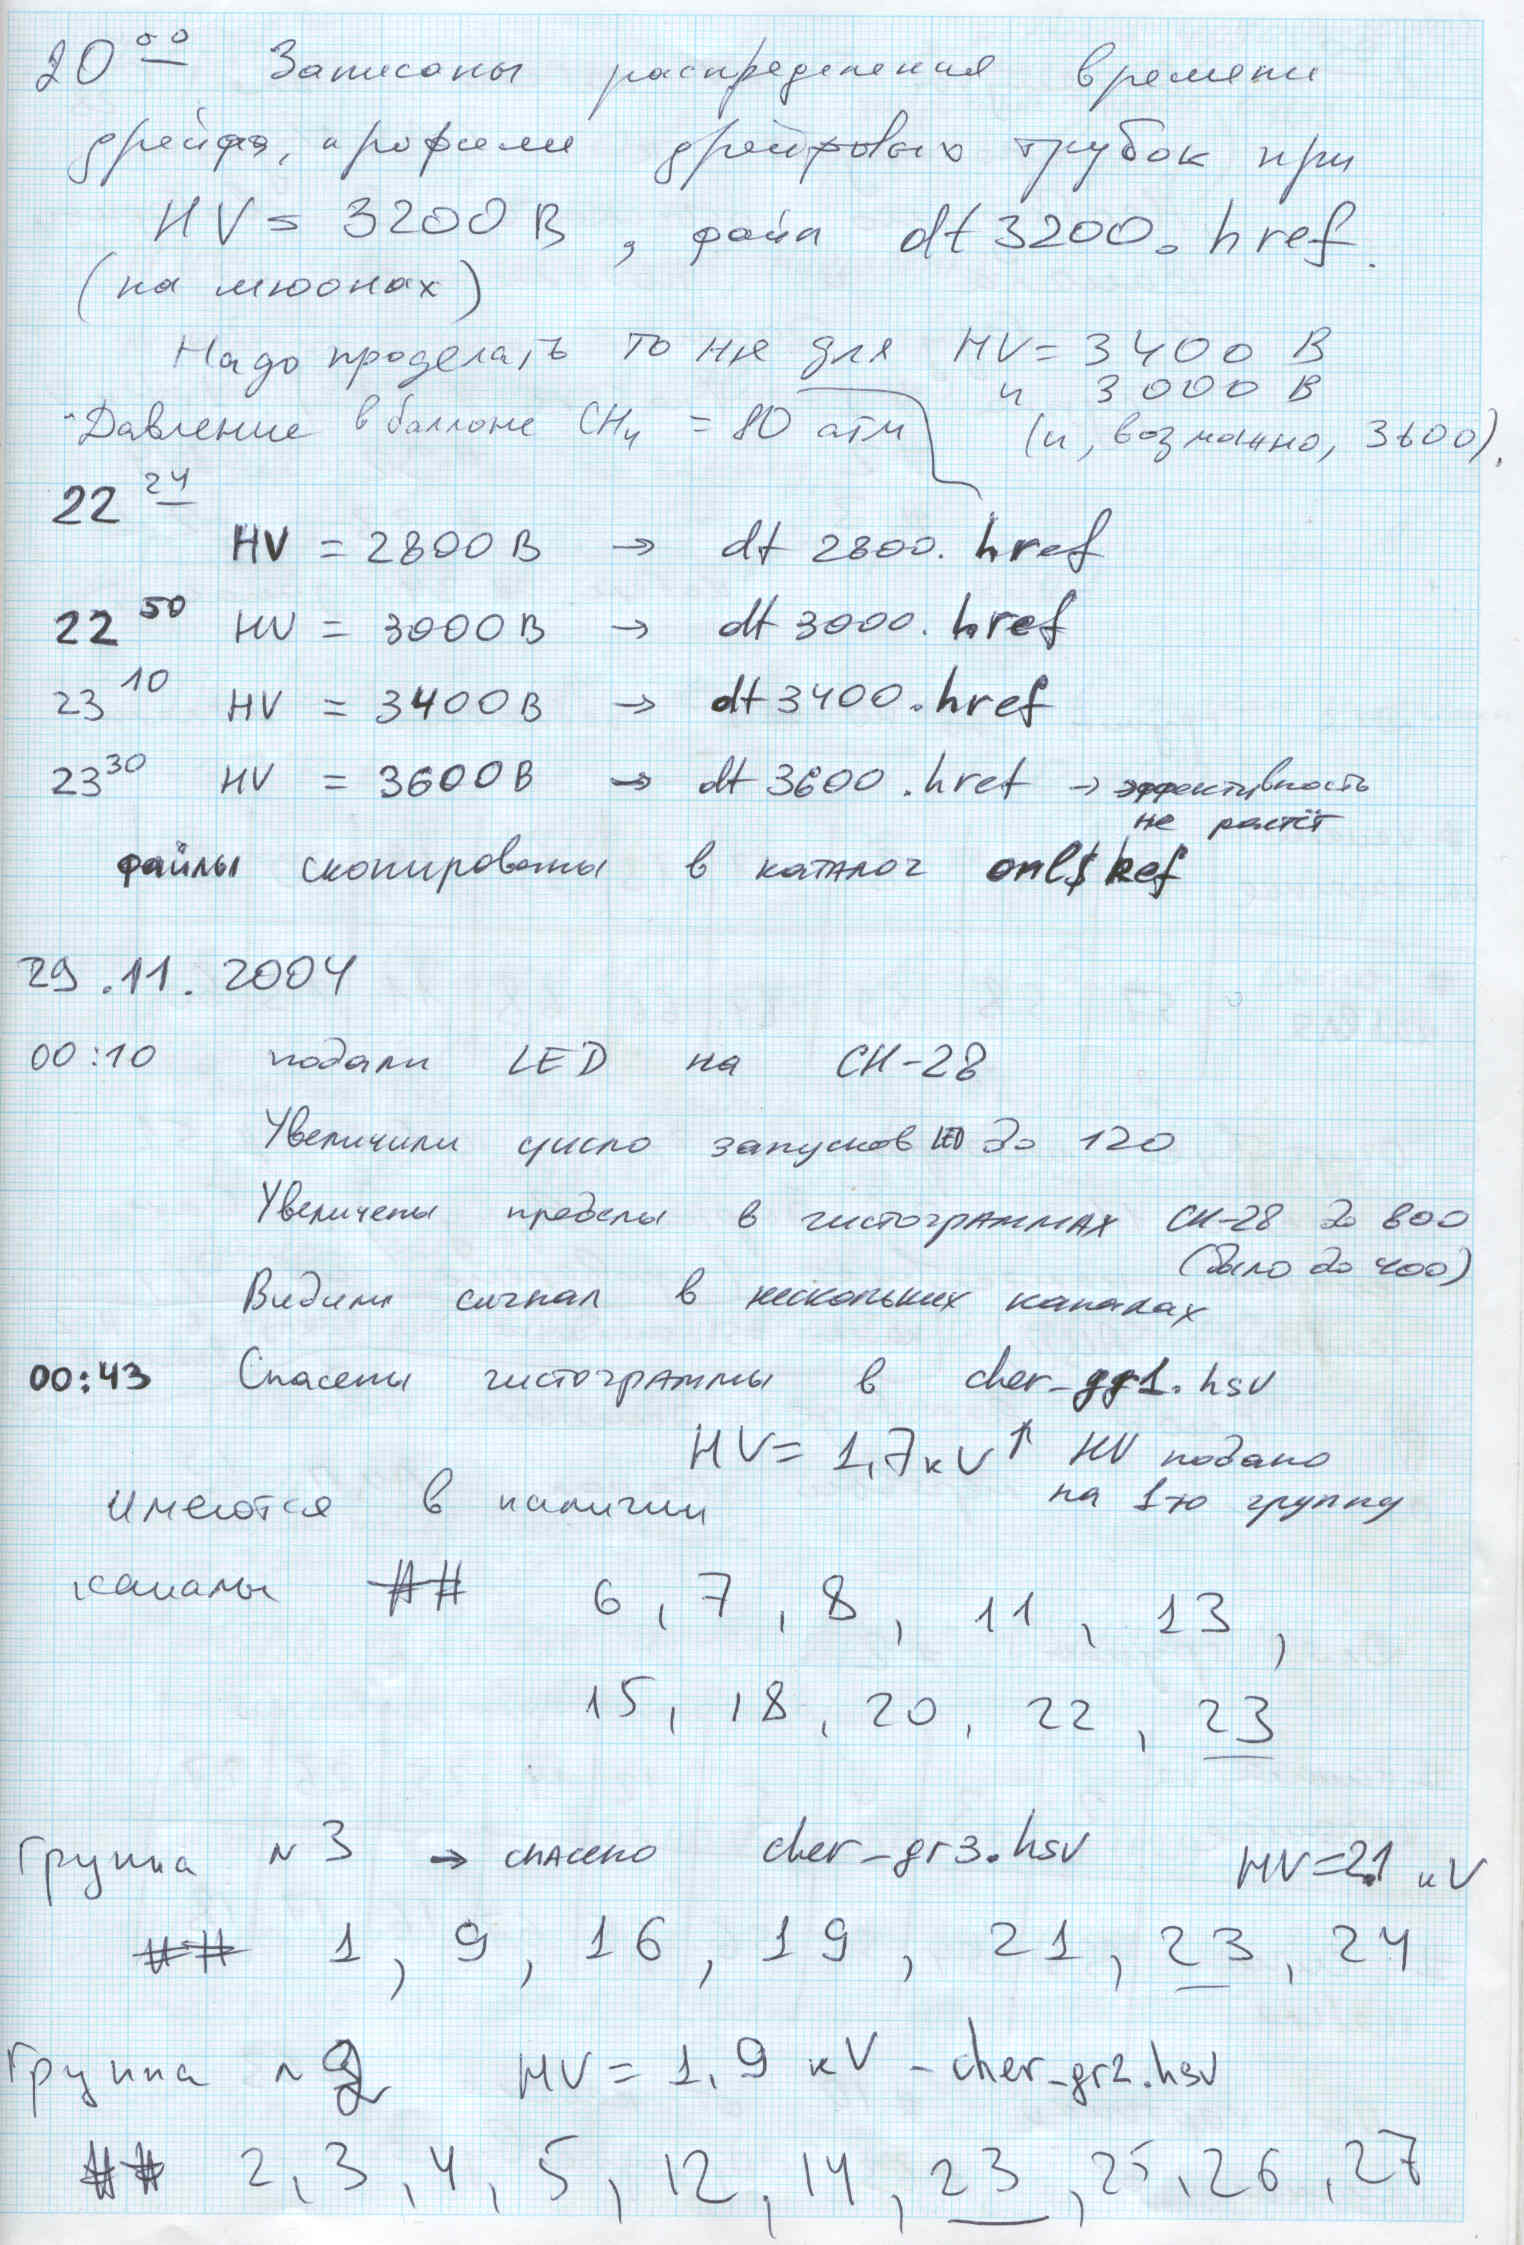 20 00 Записаны распределения времени
дрейфа, профили дрейфовых трубок при
HV = 3200 В, файл dt3200.href.
(на мюонах)
Надо проделать то же для HV = 3400 В
и 3000 В
Давление в баллоне CH4 = 80 атм (и, возможно, 3600).
22 24
HV = 2800 В → dt 2800.href
22 50 HV = 3000 В → dt 3000.href
23 10 HV = 3400 В → dt 3400.href
23 30 HV = 3600 В → dt 3600.href → эффективность
не растёт
файлы скопированы в каталог onl$ref
29.11.2004
00:10 подали LED на СК-28
Увеличили число запусков LED до 120
Увеличены пределы в гистограммах СК-28 до 800
(было до 400)
Видим сигнал в нескольких каналах
00:43 Спасены гистограммы в cher-gr1.hsv
HV = 1,7 кV ↑ HV подано
на 1-ю группу
Имеются в наличии
каналы ## 6, 7, 8, 11, 13,
15, 18, 20, 22, 23
Группа N 3 → спасено cher-gr3.hsv HV=2.1 кV
## 1, 9, 16, 19, 21, 23, 24
Группа N 2 HV = 1,9 кV - cher-gr2.hsv
## 2, 3, 4, 5, 12, 14, 23, 25, 26, 27